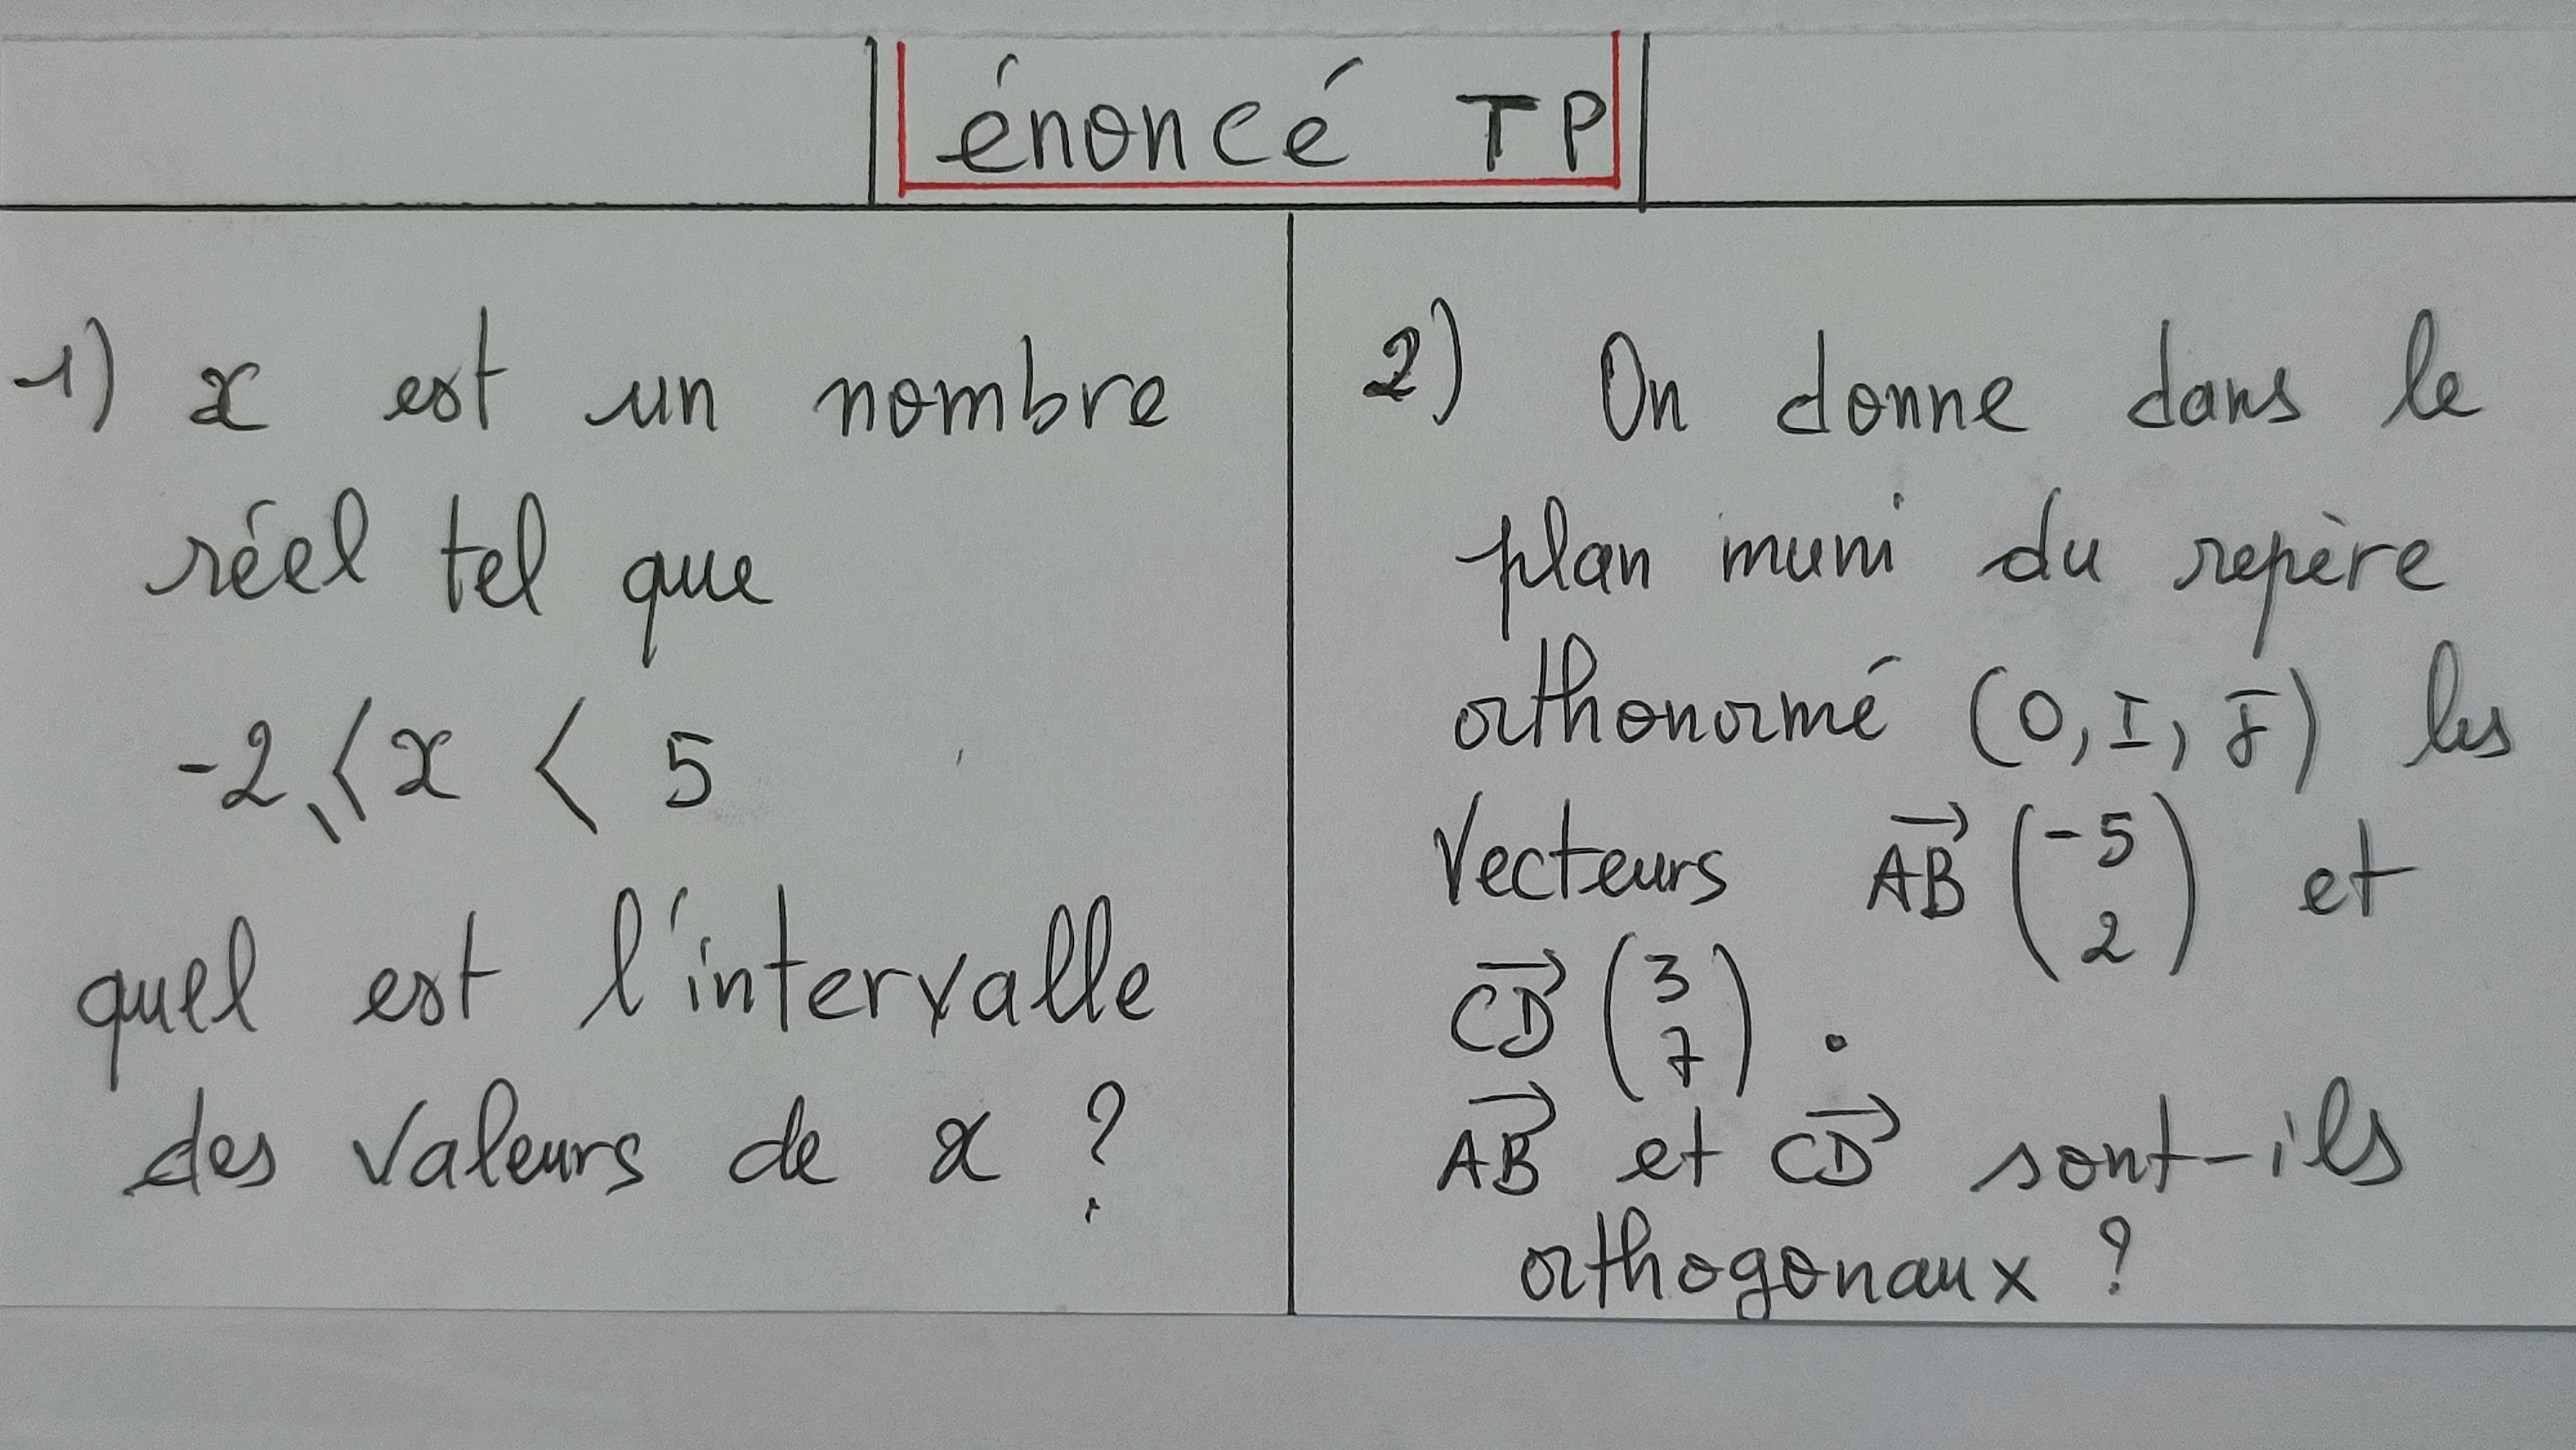 énoncé TP
1) x est un nombre
réel tel que
-2 ⩽ x < 5
quel est l'intervalle
des valeurs de x ?
2) On donne dans le
plan muni du repère
orthonormé (O, I, J) les
Vecteurs \overrightarrow{AB} \begin{pmatrix} -5 \\ 2 \end{pmatrix} et
\overrightarrow{CD} \begin{pmatrix} 3 \\ 7 \end{pmatrix} .
\overrightarrow{AB} et \overrightarrow{CD} sont-ils
orthogonaux ?